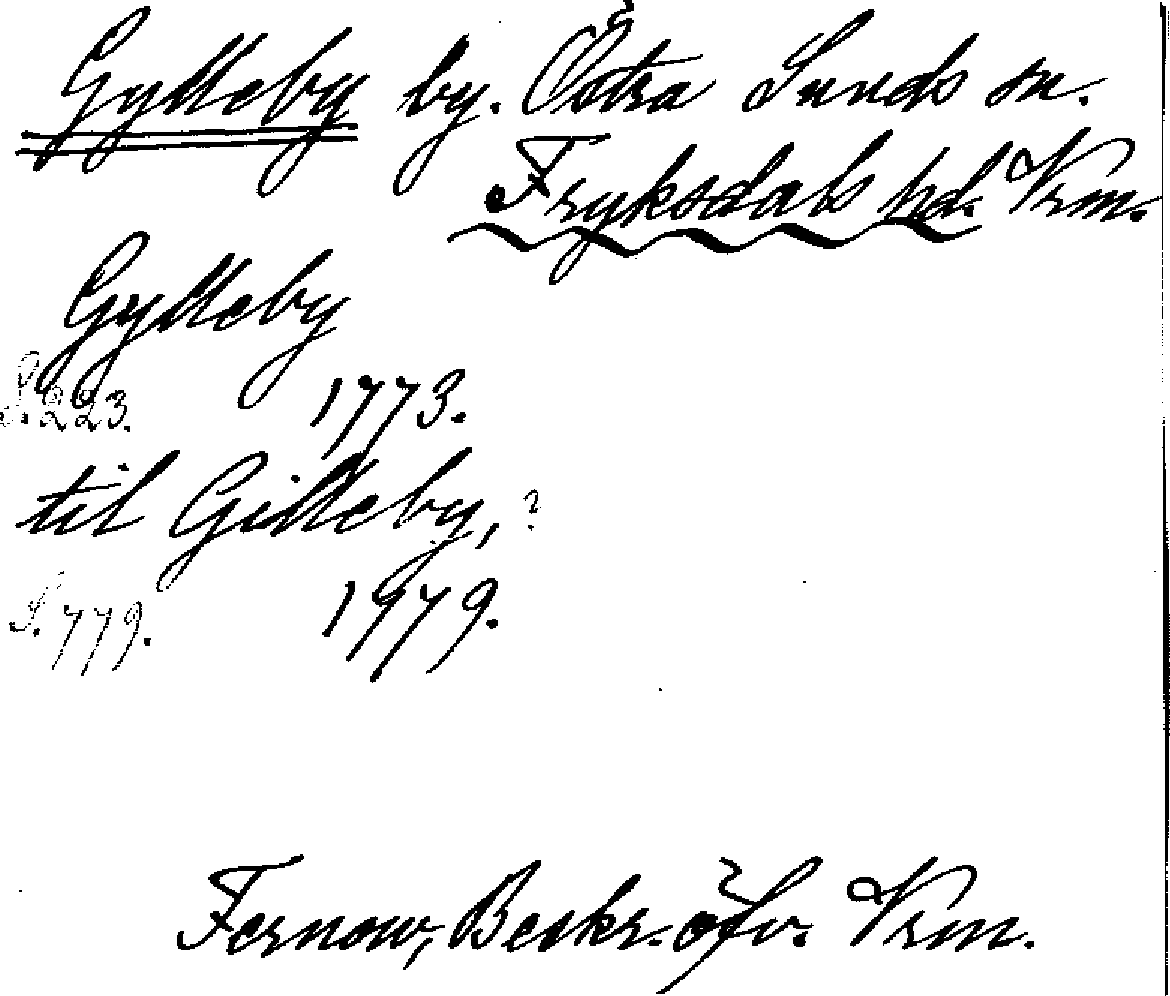 Gylleby by. Östra Sunds sn.
Fryksdals hd. Vrm.
Gylleby
S. 223. 1773.
til Gilleby, ?
S. 779. 1979.
Fernow, Beskr. öfv. Vrm.